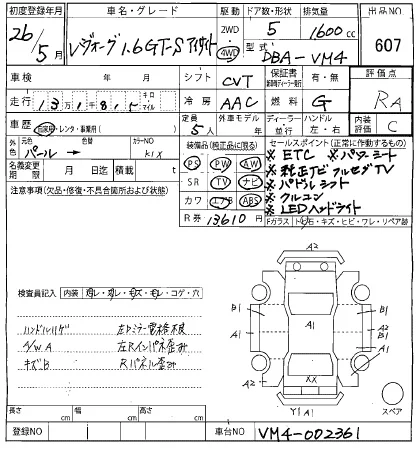 初度登録年月 車名・グレード 駆動 ドア数・形状 排気量 出品NO
26/5月 レヴォーグ 1.6GT-S アイサイト 2WD 4WD 5 1600cc 607
型式 DBA-VM4
車検 年 月 シフト CVT 保証書 有・無 評価点
走行 13万1千8 キロ マイル 冷房 AAC 燃料 G RA
車歴 自家用・レンタ・事業用( ) 定員 5人 外車モデル 年 ディーラー 並行 ハンドル 左・右 内装評価 C
外色 元色 パール→ 色替 カラーNO K1X 装備品(純正品に限る) セールスポイント(正常に作動するもの)
名義変更期限 月 日迄 積載 t PS PW AW ※ETC ※パワーシート
注意事項(欠品・修復・不具合箇所および状態) SR TV ナビ ※純正ナビフルセグTV
カワ エアB ABS ※パドルシフト
R券 13610円 ※クルコン
※LEDヘッドライト
Fガラス トビ石・キズ・ヒビ・ワレ・リペア跡
検査員記入 内装 ヨゴレ・スレ・キズ・モレ・コゲ・穴
ハンドルハゲ 左ドミラー電格不良
A/W A 左Rインパネ歪み
キズB Rパネル歪み
A2
B1 A1 B1
A1 A1
A2 A2
XX
Y1 A1 スペア
長さ cm 幅 cm 高さ cm
登録NO 車台NO VM4-002361